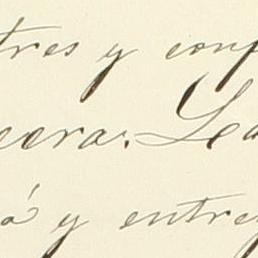 tres y conf
cera. Lea
á y entre